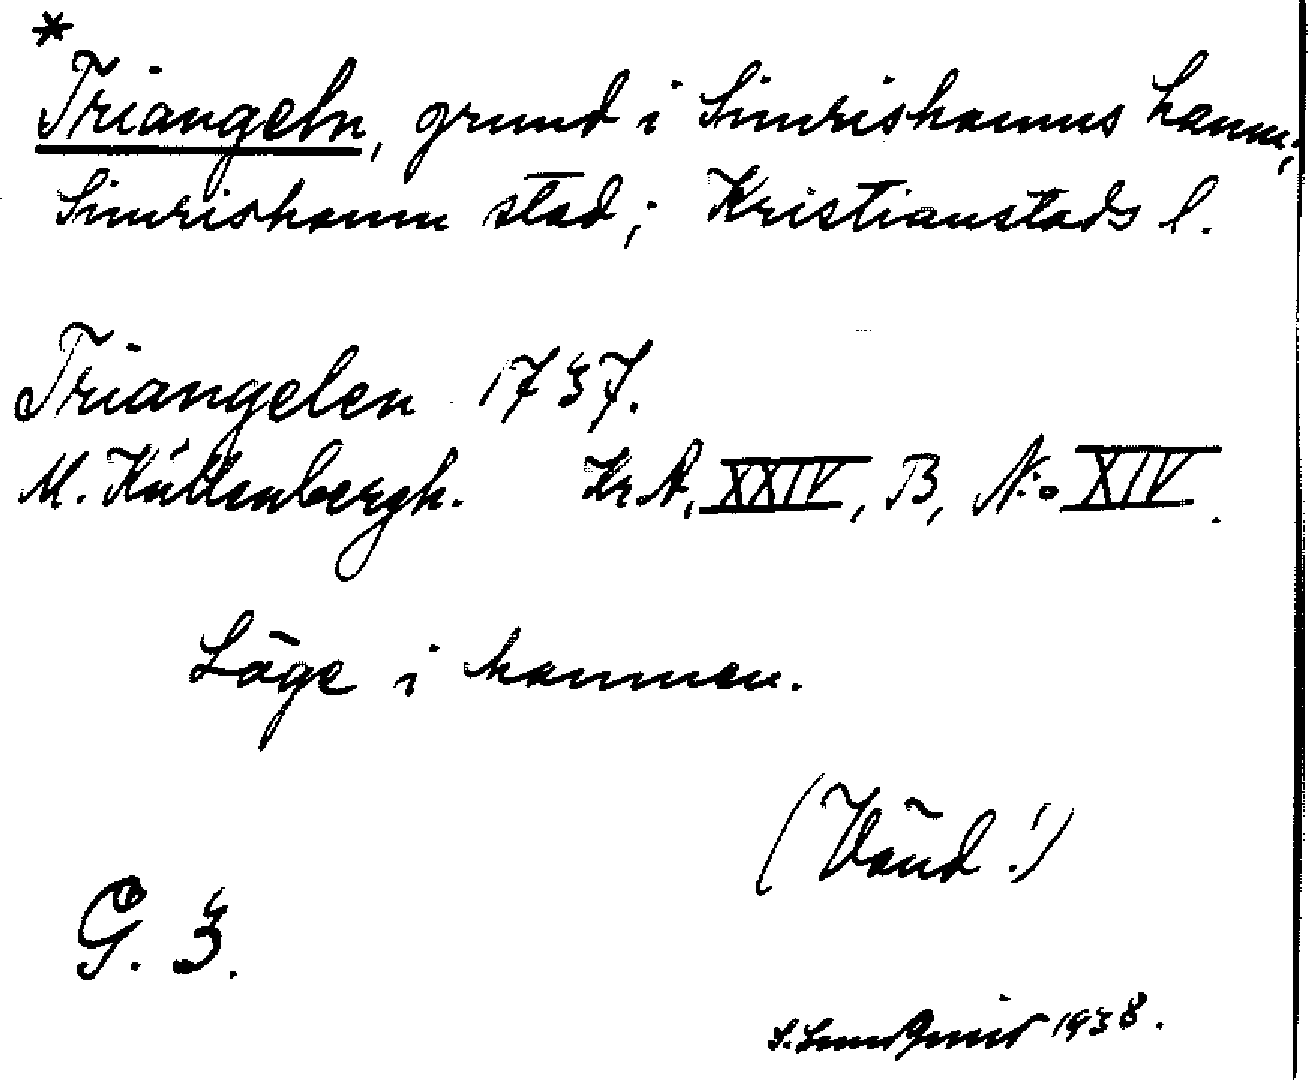 *
Triangeln, grund i Simrishamns hamn;
Simrishamn stad; Kristianstads l.
Triangelen 1737.
M. Küllenbergh. Kr A, XXIV, B, No XIV.
Läge i hamnen.
(Vänd!)
G. 3.
S. Lundqvist 1938.